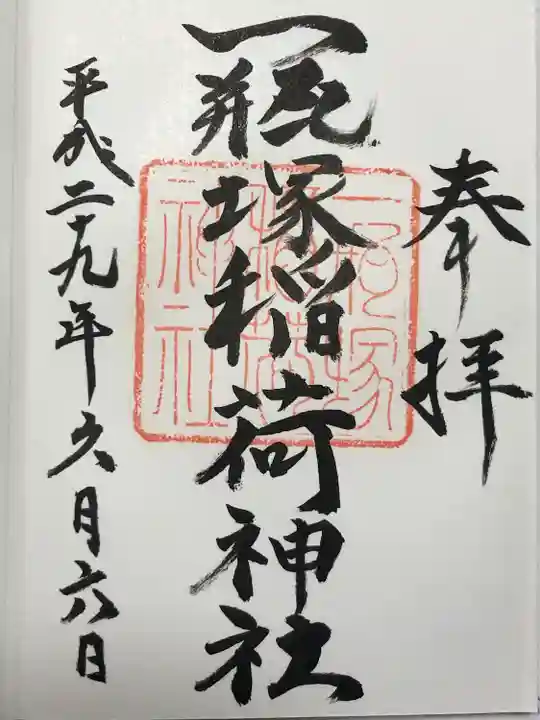 奉拝
一瓶塚稲荷神社
平成二十九年六月六日
一瓶塚
稲荷
神社